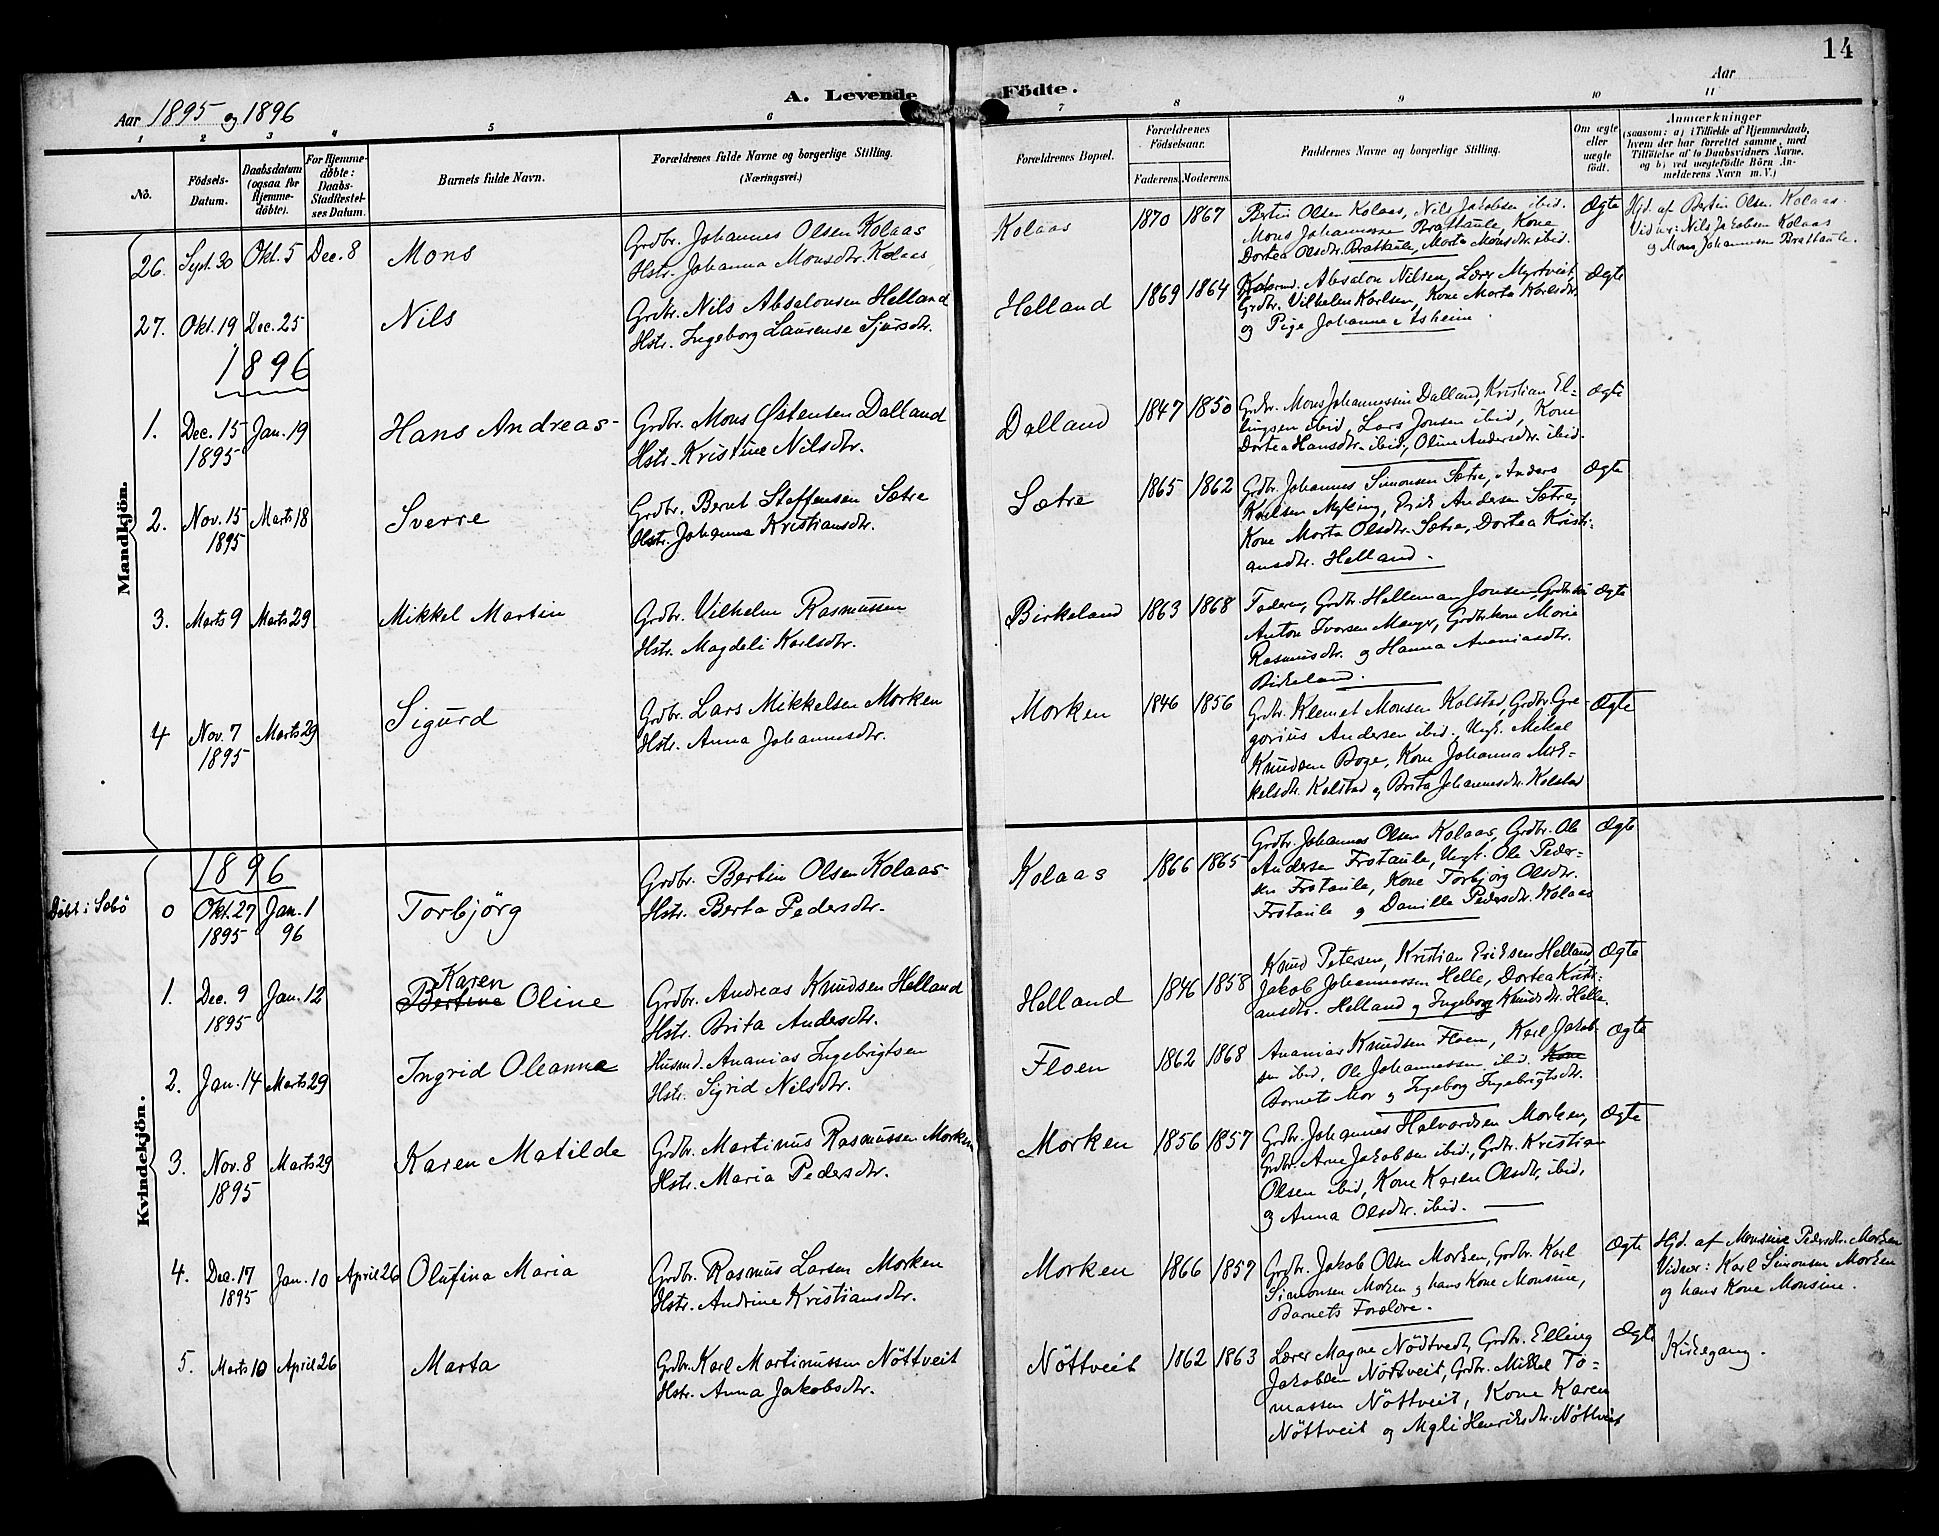 14
Aar 1895 og 1896
A. Levende Födte.
Aar
1 2 3 4 5 6 7 8 9 10 11
No.
Födsels-Datum.
Daabsdatum (ogsaa for Hjemme-døbte).
For Hjemme-døbte: Daabs-Stadfæstel-ses Datum.
Barnets fulde Navn.
Forældrenes fulde Navne og borgerlige Stilling. (Næringsvei.)
Forældrenes Bopæl.
Forældrenes Födselsaar.
Faderens. Moderens.
Faddernes Navne og borgerlige Stilling.
Om ægte eller uægte födt.
Anmærkninger
(saasom: a) i Tilfælde af Hjemmedaab,
hvem der har forrettet samme, med
Tilföielse af to Daabsvidners Navne,
og b) ved uægtefödte Börn An-
melderens Navn m. V.)
Mandkjön.
26. Sept. 30 Okt. 5 Dec. 8 Mons
Grdbr. Johannes Olsen Kolaas
Hstr. Johanna Monsdtr. Kolaas
Kolaas 1870 1867
Bertin Olsen Kolaas, Nils Jakobsen ibid.
Mons Johannessen Brattaule, Kone
Dortea Olsdtr. Brattaule, Marta Monsdtr. ibid.
Ægte
Hjd. af Bertin Olsen Kolaas.
Vidner: Nils Jakobsen Kolaas
og Mons Johannessen Brattaule.
27. Okt. 19 Dec. 25 Nils
Grdbr. Nils Absalonsen Helland
Hstr. Ingeborg Laurense Sjursdtr.
Helland 1869 1864
Absalon Nilsen, Lærer Myrtveit,
Grdbr. Vilhelm Karlsen, Kone Marta Karlsdtr.
og Pige Johanne Asheim.
Ægte
1896
1. Dec. 15 1895 Jan. 19 Hans Andreas
Grdbr. Mons Østensen Dalland
Hstr. Kristine Nilsdtr.
Dalland 1847 1850
Grdbr. Mons Johannessen Dalland, Kristian El-
lingsen ibid, Lars Jonsen ibid, Kone
Dortea Hansdtr. ibid, Oline Andersdtr. ibid.
Ægte
2. Nov. 15 1895 Marts 18 Sverre
Grdbr. Bernt Steffensen Sætre
Hstr. Johanna Kristiansdtr.
Sætre 1865 1862
Grdbr. Johannes Simonsen Sætre, Anders
Karlsen Myking, Erik Andersen Sætre,
Kone Marta Olsdtr. Sætre, Dortea Kristi-
ansdtr. Helland.
Ægte
3. Marts 9 Marts 29 Mikkel Martin
Grdbr. Vilhelm Rasmussen
Hstr. Magdeli Karlsdtr.
Birkeland 1863 1868
Faderen, Grdbr. Helleman Jonsen,
Anton Ivarsen Manger, Grdbrkone Maria
Rasmusdtr. og Hanna Ananiasdtr.
Birkeland.
Ægte
4 Nov. 7 1895 Marts 29 Sigurd
Grdbr. Lars Mikkelsen Morken
Hstr. Anna Johannesdtr.
Morken 1846 1856
Grdbr. Klemet Monsen Kolstad, Grdbr. Gre-
gorius Andersen ibid. Ungk. Mikal
Knudsen Boge, Kone Johanna Mik-
kelsdtr. Kolstad og Brita Johannesdtr. Kolstad
Ægte
Kvindekjön.
1896
Döbt i Sæbö
0 Okt. 27 1895 Jan. 1 96 Torbjörg
Grdbr. Bertin Olsen Kolaas
Hstr. Berta Pedersdtr.
Kolaas 1866 1865
Grdbr. Johannes Olsen Kolaas, Grdbr. Ole
Andersen Frotaule, Ungk. Ole Peder-
sen Frotaule, Kone Torbjörg Olsdtr.
Frotaule og Danille Pedersdtr. Kolaas
Ægte
1. Dec. 9 1895 Jan. 12 Karen
Bertine Oline
Grdbr. Andreas Knudsen Helland
Hstr. Brita Andersdtr.
Helland 1846 1858
Knud Petersen, Kristian Eriksen Helland,
Jakob Johannessen Helle, Dortea Kristi-
ansdtr. Helland og Ingeborg Knudsdtr. Helle.
Ægte
2. Jan. 14 Marts 29 Ingrid Oleanna
Husmd. Ananias Ingebrigtsen
Hstr. Sigrid Nilsdtr.
Floen 1862 1868
Ananias Knudsen Floen, Karl Jakob-
sen ibid, Ole Johannessen ibid. Kone
Barnets Mor og Ingeborg Ingebrigtsdtr.
Ægte
3. Nov. 8 1895 Marts 29 Karen Matilde
Grdbr. Martinus Rasmussen Morken
Hstr. Maria Pedersdtr.
Morken 1856 1857
Grdbr. Johannes Halvordsen Morken,
Grdbr. Arne Jakobsen ibid., Grdbr. Kristian
Olsen ibid, Kone Karen Olsdtr. ibid,
og Anna Olsdtr. ibid.
Ægte
4. Dec. 17 1895 Jan. 10 April 26 Olufina Maria
Grdbr. Rasmus Larsen Morken
Hstr. Andrine Kristiansdtr.
Morken 1866 1857
Grdbr. Jakob Olsen Morken, Grdbr. Karl
Simonsen Morken og hans Kone Monsine,
Barnets Forældre.
Ægte
Hjd. af Monsine Pedersdtr. Morken
Vidner: Karl Simonsen Morken
og hans Kone Monsine.
5. Marts 10 April 26 Marta
Grdbr. Karl Martinussen Nöttveit
Hstr. Anna Jakobsdtr.
Nöttveit 1862 1863
Lærer Magne Nödtvedt, Grdbr. Elling
Jakobsen Nöttveit, Grdbr. Mikkel To-
massen Nöttveit, Kone Karen
Nöttveit og Mgli Henriksdtr. Nöttveit
Ægte
Kirkegang.